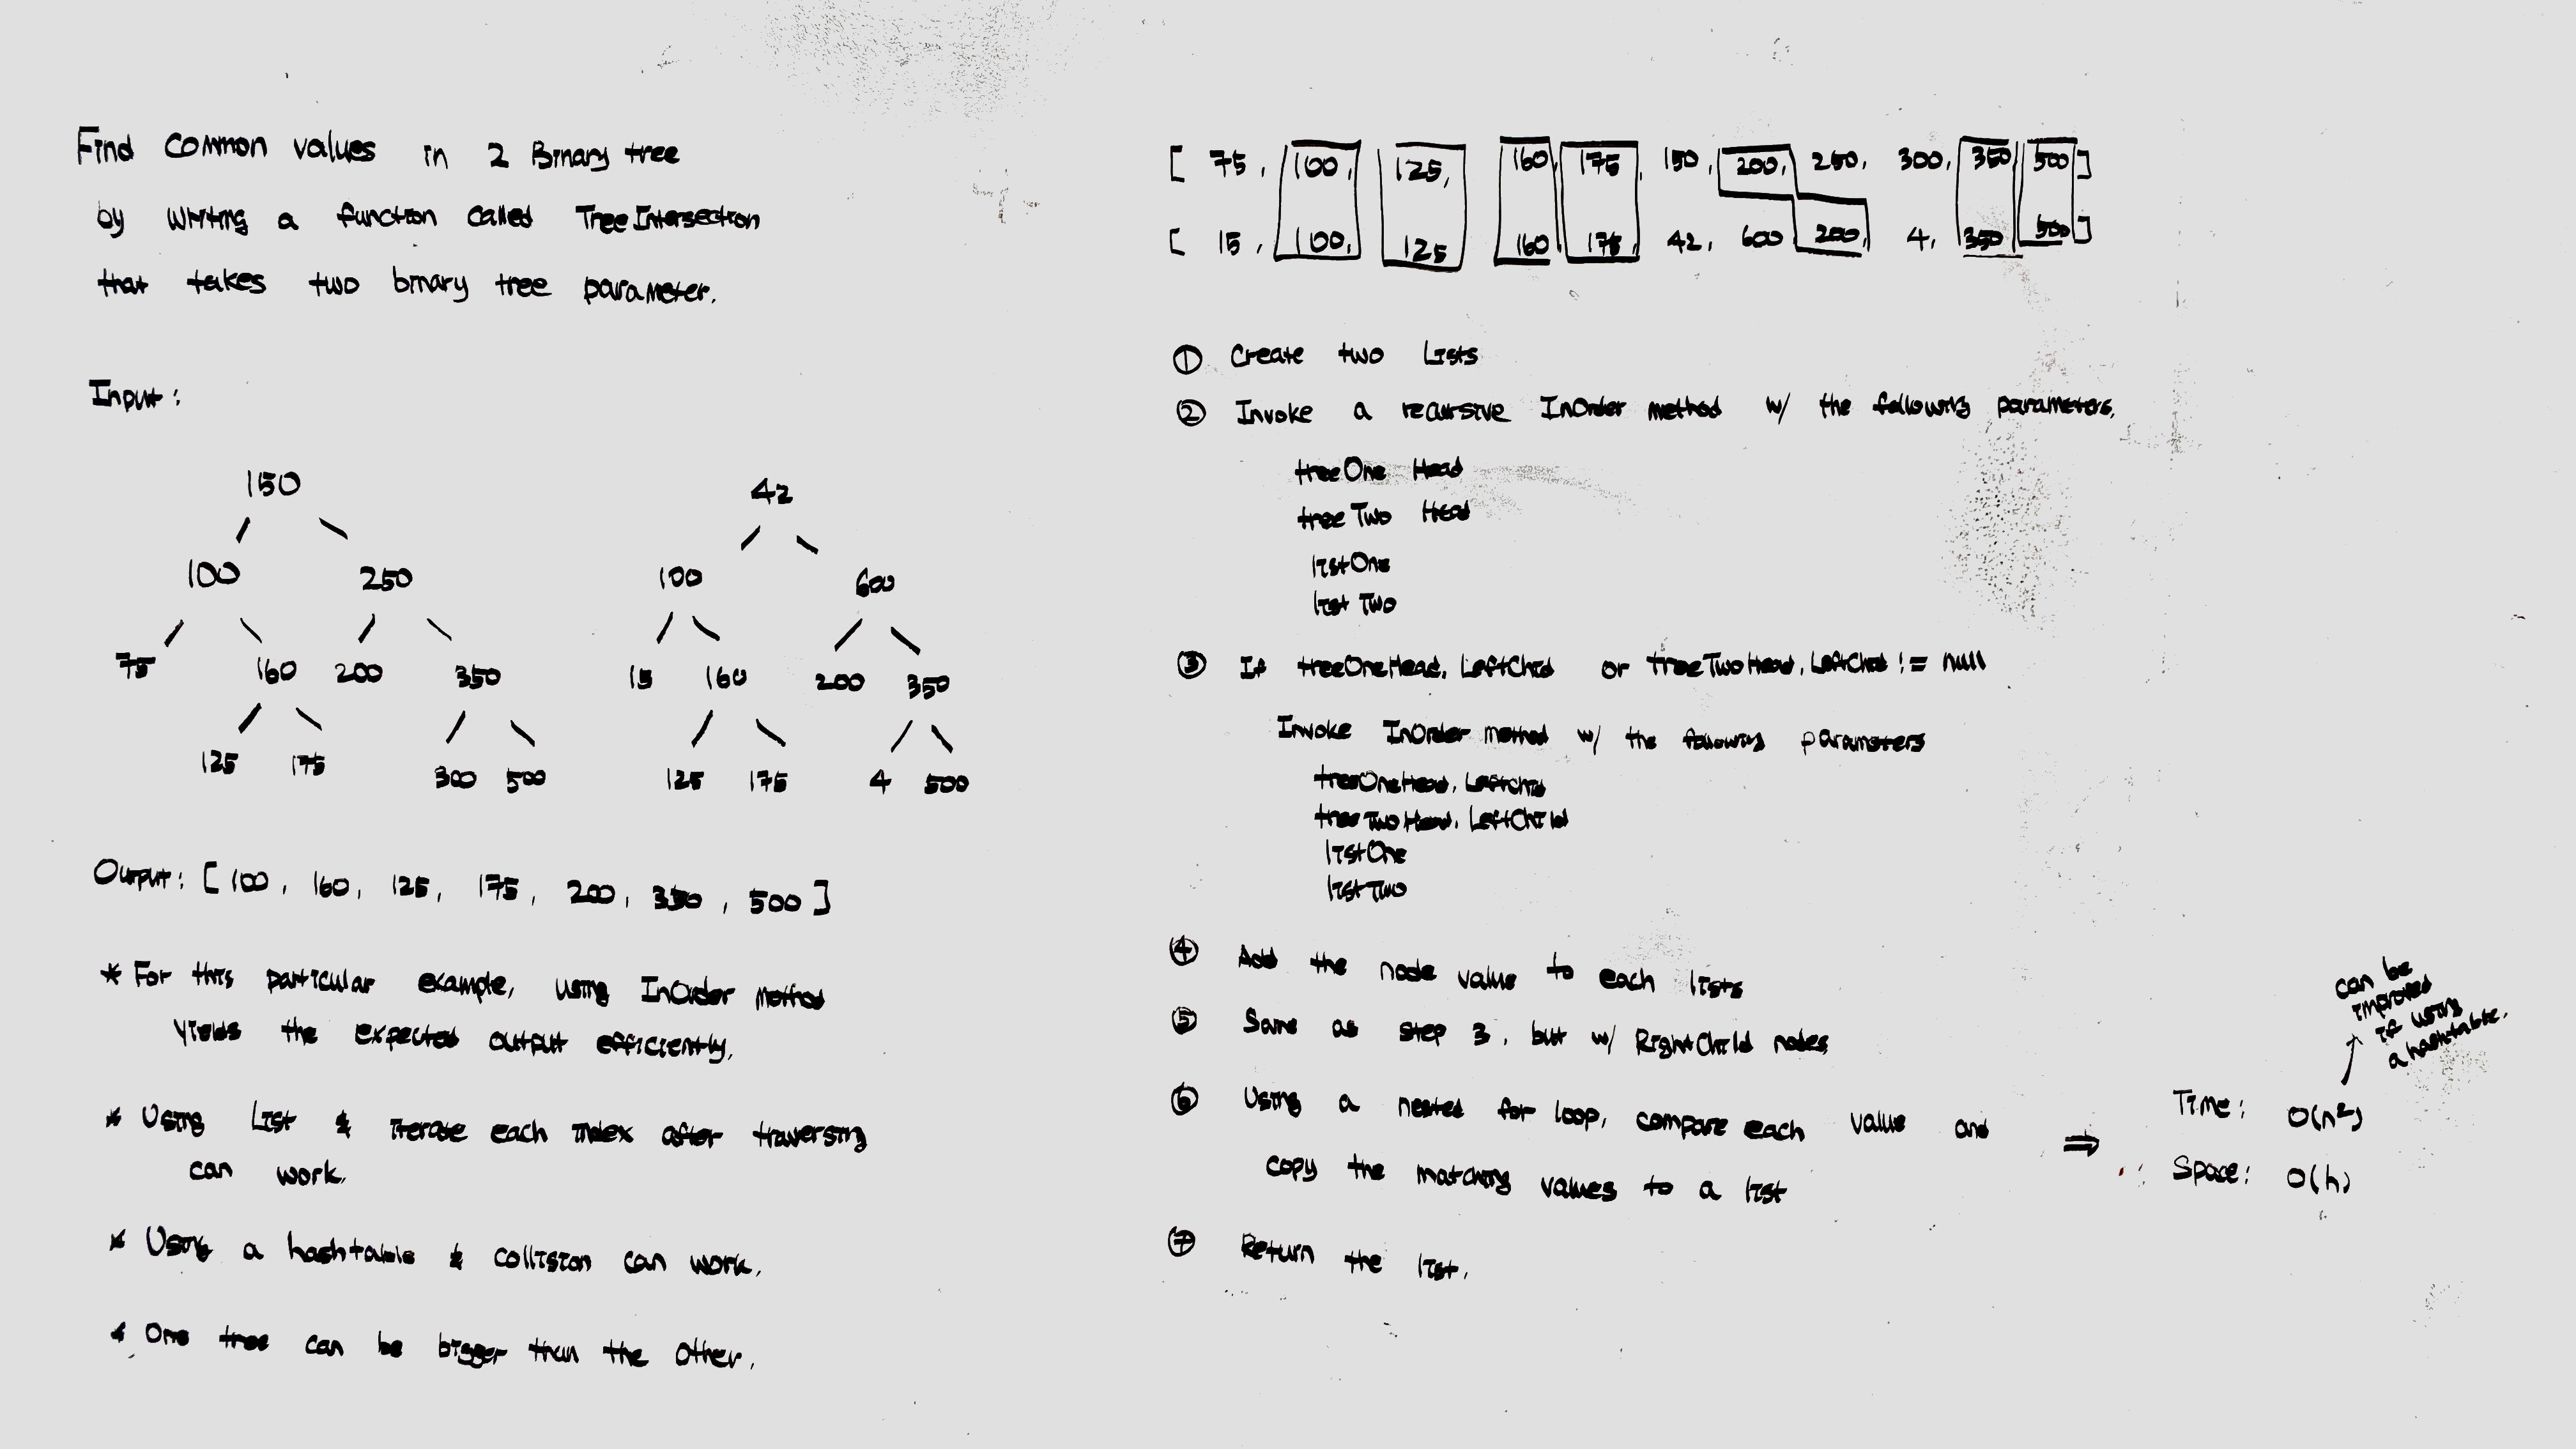 Find common values in 2 Binary tree
by writing a function called TreeIntersection
that takes two binary tree parameter.
Input:
150
100 250
75 160 200 350
125 175 300 500
42
100 600
15 160 200 350
125 175 4 500
Output: [ 100, 160, 125, 175, 200, 350, 500 ]
* For this particular example, using InOrder method
yields the expected output efficiently.
* Using List & iterate each index after traversing
can work.
* Using a hashtable & collision can work.
* One tree can be bigger than the other.
[ 75, 100, 125, 160, 175, 150, 200, 250, 300, 350, 500 ]
[ 15, 100, 125 160 175, 42, 600 200, 4, 350 500 ]
① Create two Lists
② Invoke a recursive InOrder method w/ the following parameters.
treeOne Head
treeTwo Head
listOne
list Two
③ If treeOneHead.LeftChild or treeTwoHead.LeftChild != null
Invoke InOrder method w/ the following parameters
treeOneHead.LeftChild
treeTwoHead.LeftChild
listOne
listTwo
④ Add the node value to each lists
⑤ Same as step 3, but w/ RightChild nodes
⑥ Using a nested for loop, compare each value and
copy the matching values to a list
⑦ Return the list.
⇒
Time: O(n²)
Space: O(h)
can be
improved
if using
a hashtable.